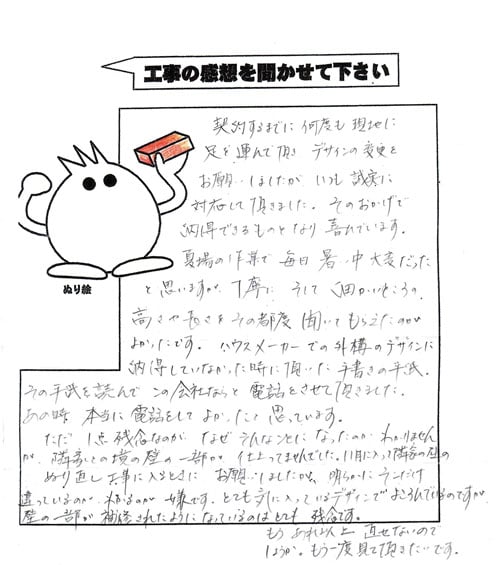 工事の感想を聞かせて下さい
契約するまでに何度も現地に
足を運んで頂き デザインの変更を
お願いしましたが いつも誠実に
対応して頂きました。そのおかげで
納得できるものとなり 喜んでいます。
夏場の作業で毎日暑い中大変だった
と思いますが、丁寧に そして 細かいところの、
高さや長さをその都度聞いてもらえたのが
よかったです。ハウスメーカーでの外構のデザインに
納得していなかった時に頂いた手書きの手紙。
ぬり絵
その手紙を読んで この会社ならと電話をさせて頂きました。
あの時 本当に電話をして よかったと思っています。
ただ 1点残念なのが、なぜそんなことになったのか わかりません
が、隣家との境の壁の一部が 仕上ってませんでした。1月に入って隣家の
ぬり直し工事に入るときに お願いしましたが、明らかに そこだけ
違っているのが わかるのが 嫌です。とても気に入っているデザインでよろこんでいるのですが
壁の一部が補修されたようになっているのはとても 残念です。
もう あれ以上 直せないので
しょうか。もう一度見て頂きたいです。